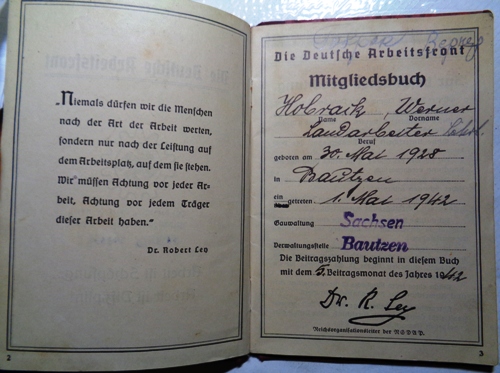 „Niemals dürfen wir die Menschen
nach der Art der Arbeit werten,
sondern nur nach der Leistung auf
dem Arbeitsplatz, auf dem sie stehen.
Wir müssen Achtung vor jeder Ar-
beit, Achtung vor jedem Träger
dieser Arbeit haben.“
Dr. Robert Ley
2
Die Deutsche Arbeitsfront
Mitgliedsbuch
Hobrack, Werner
Name Vorname
Landarbeiter
Beruf
geboren am 30. Mai 1928
in Bautzen
eingetreten 1. Mai 1942
Gauwaltung Sachsen
Verwaltungsstelle Bautzen
Die Beitragszahlung beginnt in diesem Buch
mit dem 5. Beitragsmonat des Jahres 1942
Dr. R. Ley
Reichsorganisationsleiter der NSDAP.
3